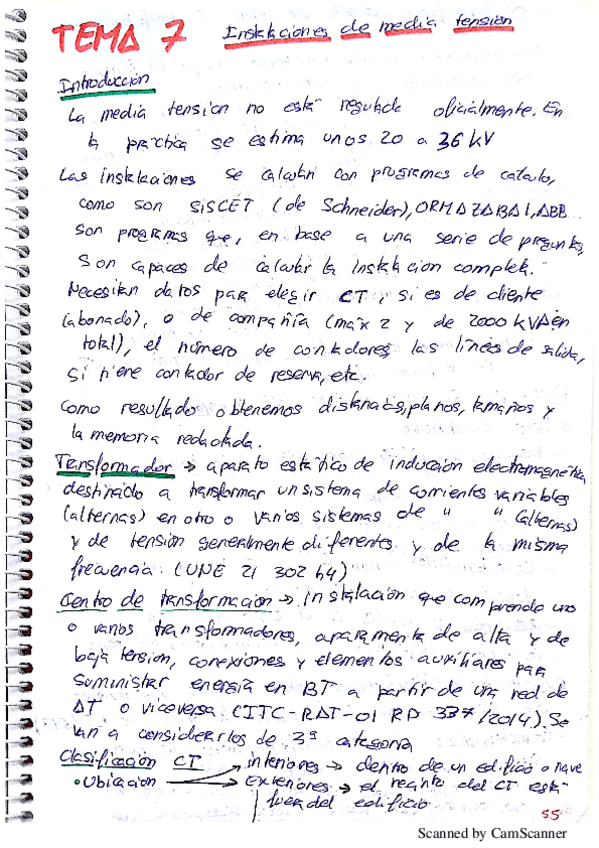 TEMA 7 Instalaciones de media tensión
Introducción
La media tensión no está regulada oficialmente. En
la práctica se estima unos 20 a 36 kV
Las instalaciones se calculan con programas de calculo,
como son SISCET (de Schneider), ORMAZABAL, ABB
Son programas que, en base a una serie de preguntas,
son capaces de calcular la instalacion completa.
Necesitan datos para elegir CT, si es de cliente
(abonado), o de compañía (max 2 y de 2000 kVA en
total), el número de contadores, las líneas de salida,
si tiene contador de reserva, etc.
Como resultado obtenemos distancias, planos, tamaños y
la memoria redactada.
Transformador → aparato estático de inducción electromagnética
destinado a transformar un sistema de corrientes variables
(alternas) en otro o varios sistemas de " " (alternas)
y de tensión generalmente diferentes y de la misma
frecuencia. (UNE 21 302 h4)
Centro de transformación → instalación que comprende uno
o varios transformadores, aparamenta de alta y de
baja tension, conexiones y elementos auxiliares para
suministrar energía en BT a partir de una red de
AT o viceversa (ITC-RAT-01 RD 337/2014). Se
van a considerarlos de 3ª categoría
Clasificación CT
• Ubicación → interiores → dentro de un edificio o nave
→ exteriores → el recinto del CT está
fuera del edificio
55
Scanned by CamScanner